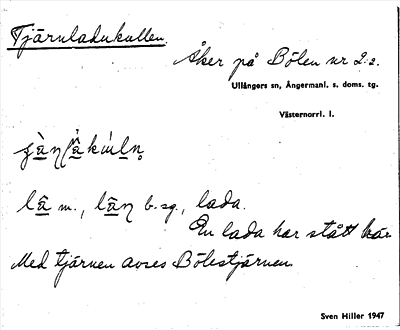 Tjärnladukullen.
Åker på Bölen nr 2:2.
Ullångers sn, Ångermanl. s. doms. tg.
Västernorrl. l.
lâ m., lâŋ b. sg., lada.
En lada har stått här.
Med tjärnen avses Bölestjärnen.
Sven Hiller 1947